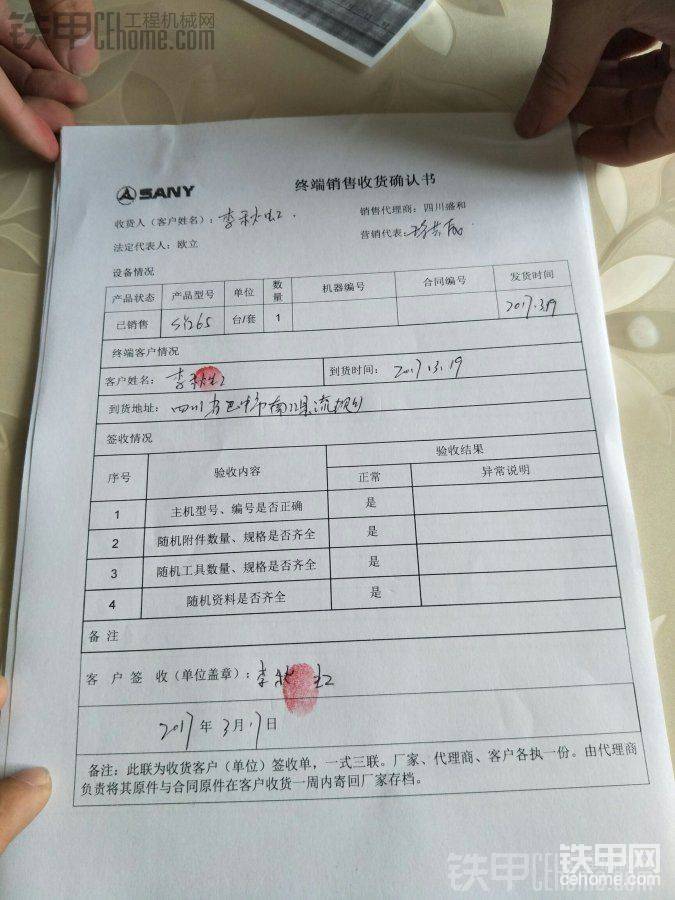 铁甲CE工程机械网
Cehome.com
SANY
终端销售收货确认书
收货人（客户姓名）：李秋虹
销售代理商：四川盛和
法定代表人：欧立
营销代表：
设备情况
产品状态 产品型号 单位 数量 机器编号 合同编号 发货时间
已销售 SY265 台/套 1 2017.3.19
终端客户情况
客户姓名：李秋虹 到货时间：2017.3.19
到货地址：四川省巴中市南江县流坝乡
签收情况
序号 验收内容 验收结果
正常 异常说明
1 主机型号、编号是否正确 是
2 随机附件数量、规格是否齐全 是
3 随机工具数量、规格是否齐全 是
4 随机资料是否齐全 是
备 注
客 户 签 收（单位盖章）：李秋虹
2017年3月17日
备注：此联为收货客户（单位）签收单，一式三联。厂家、代理商、客户各执一份。由代理商
负责将其原件与合同原件在客户收货一周内寄回厂家存档。
铁甲网
cehome.com